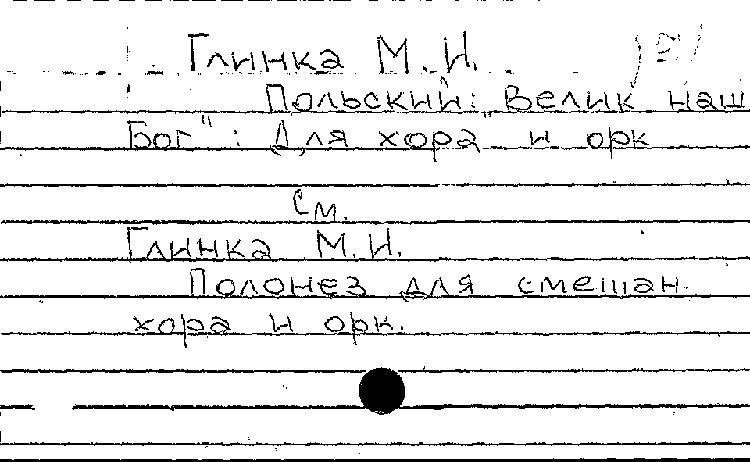 Глинка М.И.
Польский: „Велик наш
Бог“: Для хора и орк
См.
Глинка М.И.
Полонез для смешан.
хора и орк.